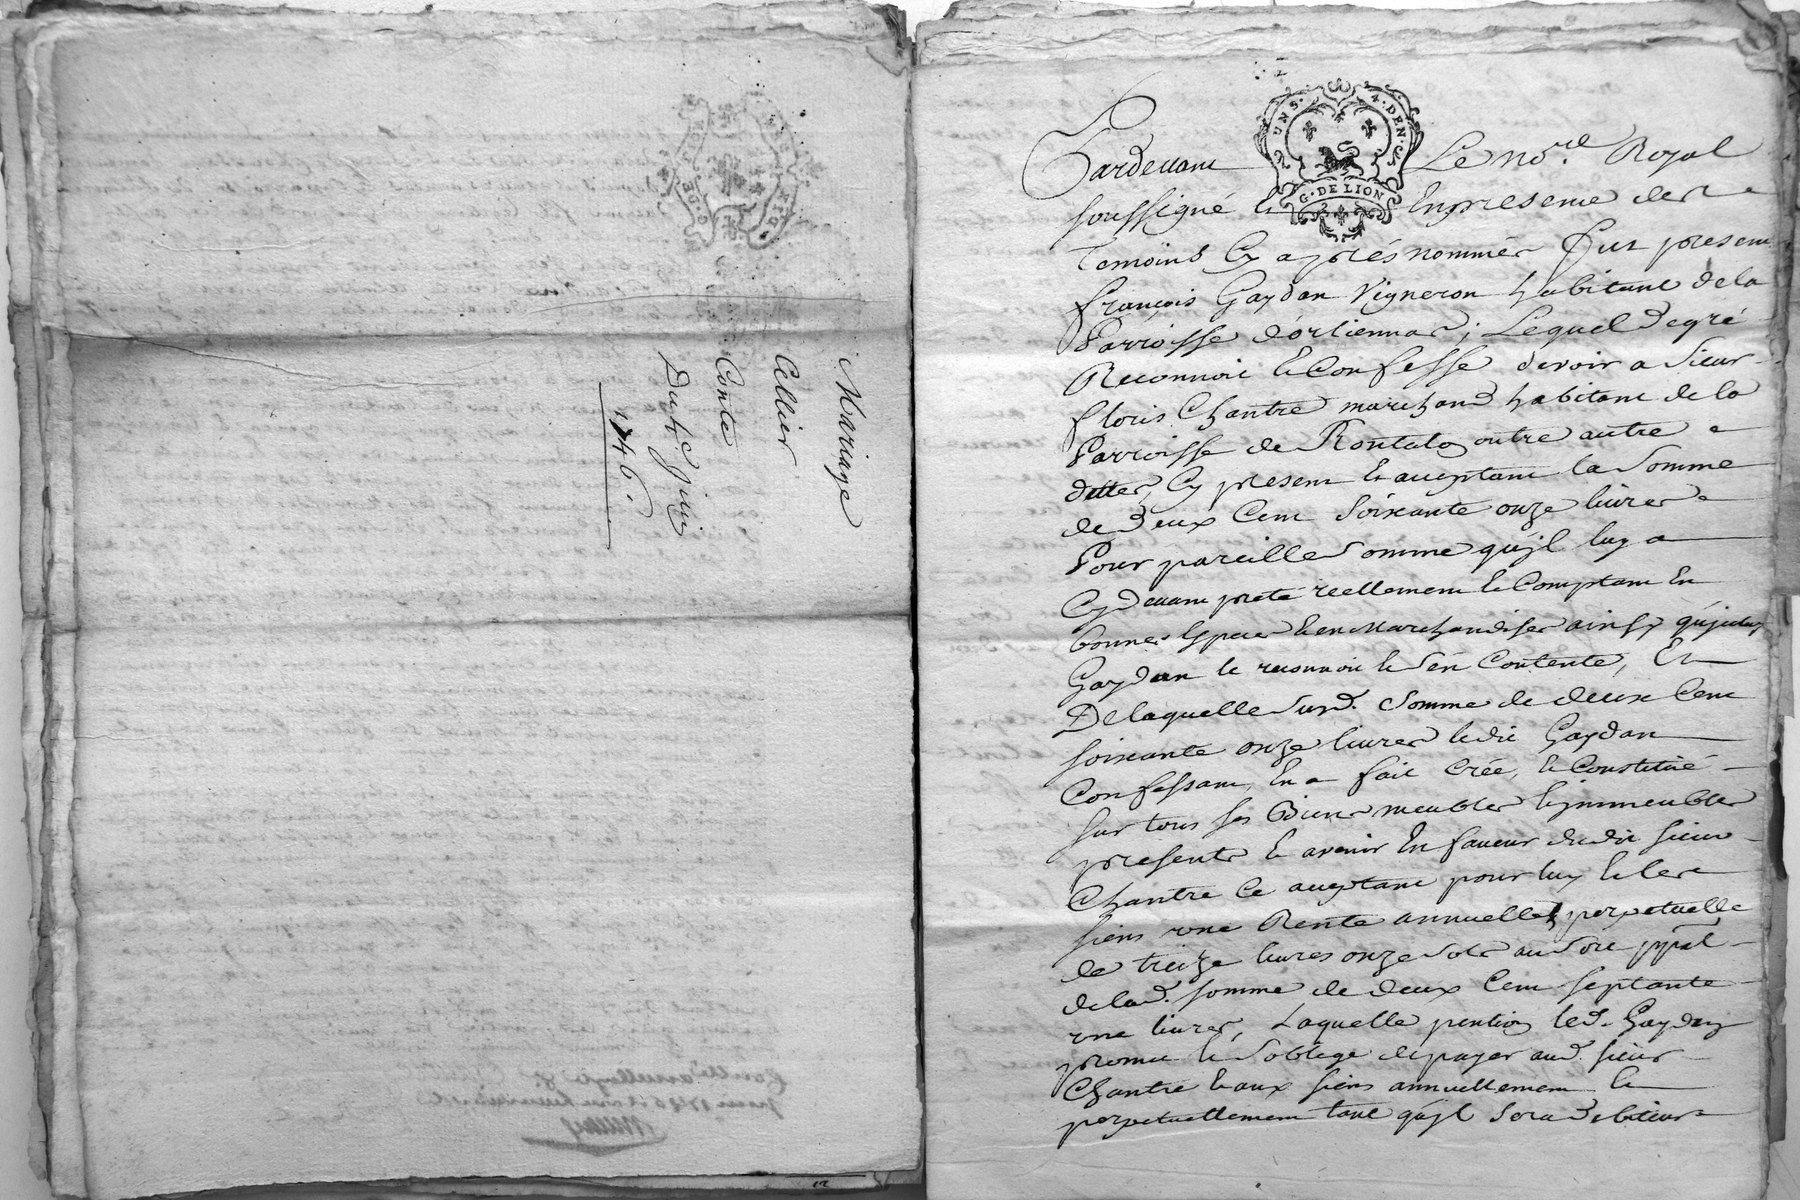 Mariage
Cellier
Conte
Du 4e Juin
1746.
UN S. 4. DEN.
G. DE LION
Pardevant Le no.re Royal
soussigné Et En presence des
Temoins Cy aprés nommés fut present
françois Gaydan Vigneron habitant de la
Parroisse d'orlienas; Lequel de gré
Reconnoit & Confesse devoir a sieur
floris Chantre marchand habitant de la
Parroisse de Rontalon outre autre
dettes, Cy present & acceptant la somme
de deux Cent soixante onze livres
Pour pareille somme qu'jl luy a
Cy devant preté réellement & Comptant En
bonnes Espece & en Marchandises ainsy qu'jceluy
Gaydan le reconnoit & s'en Contente, Et
De laquelle susd. somme de deux Cent
soixante onze livres ledit Gaydan
Confessant, En a fait Crée, & Constitué
sur tous ses Biens meubles & jmmeubles
presents & avenir En faveur dudit sieur
Chantre Ce acceptant pour luy & les
siens une Rente annuelle & perpetuelle
de treize livres onze sols au sort pp̃al
de lad. somme de deux Cent septante
une livres, Laquelle pention led. Gaydan
promet & s'oblige de payer aud. sieur
Chantre & aux siens annuellement &
perpetuellement tant qu'jl sera debiteur